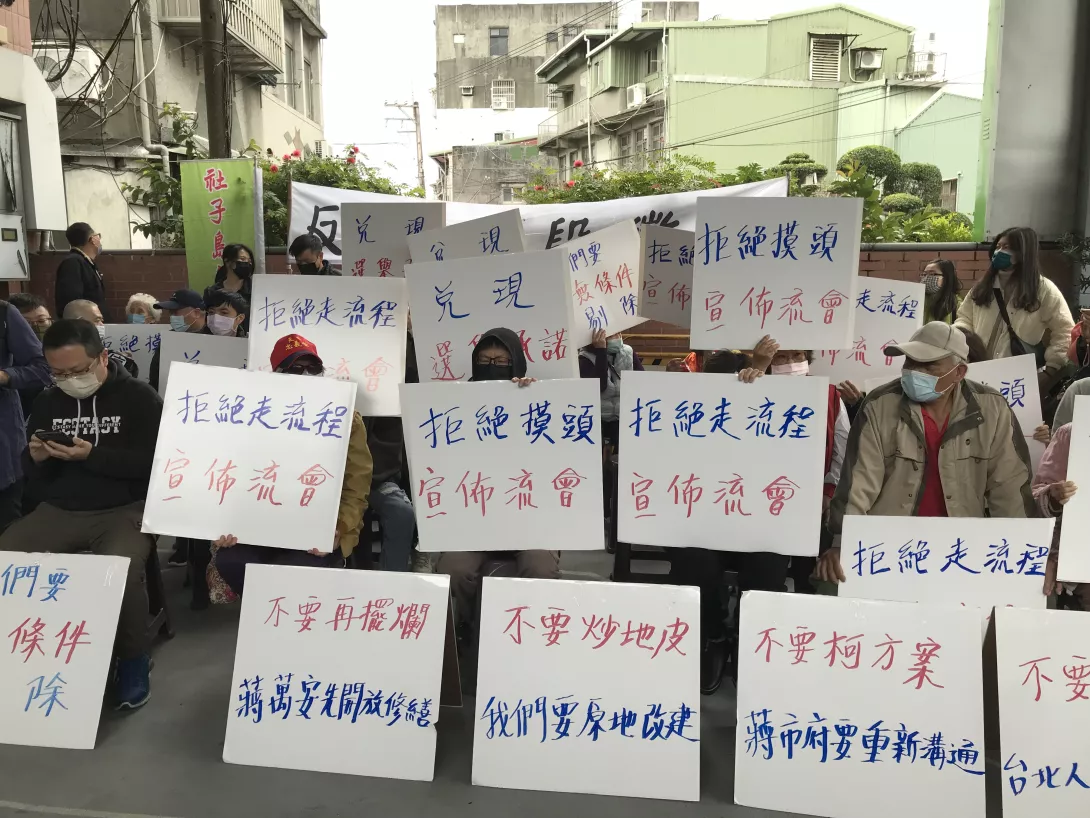 社子島
反
兌現
選舉
兌現
們要
無條件
剔除
拒絕
宣佈
拒絕摸頭
宣佈流會
拒絕走流程
宣佈流會
兌現
選
諾
走流程
流會
ECSTASY
拒絕走流程
宣佈流會
拒絕摸頭
宣佈流會
拒絕走流程
宣佈流會
拒絕走流程
們要
條件
除
不要再擺爛
蔣萬安先開放修繕
不要炒地皮
我們要原地改建
不要柯方案
蔣市府要重新溝通
不要
台北人